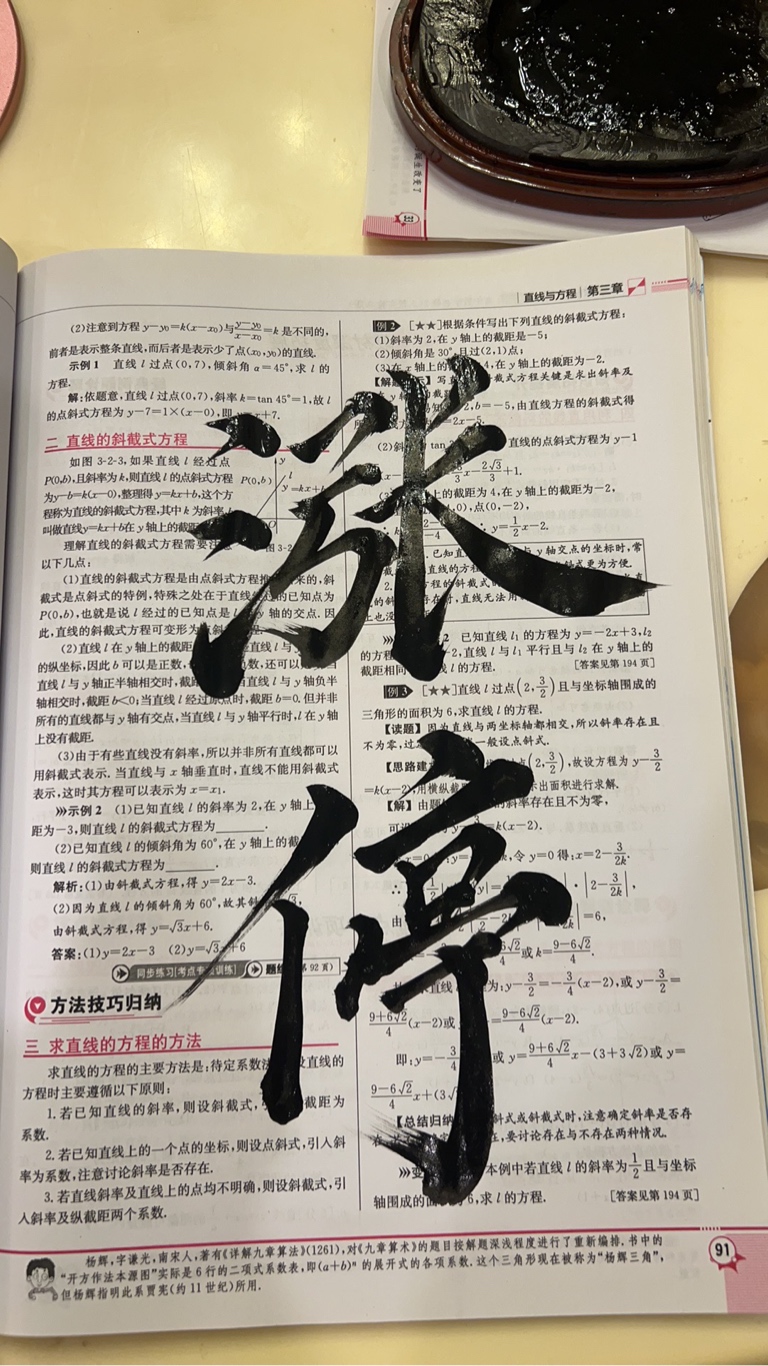 涨
停
直线与方程 第三章
(2)注意到方程 y-y₀=k(x-x₀)与(y-y₀)/(x-x₀)=k 是不同的,
前者是表示整条直线,而后者是表示少了点(x₀,y₀)的直线.
示例1 直线 l 过点(0,7),倾斜角 α=45°,求 l 的
方程.
解:依题意,直线 l 过点(0,7),斜率 k=tan 45°=1,故 l
的点斜式方程为 y-7=1×(x-0),即 y=x+7.
二 直线的斜截式方程
如图 3-2-3,如果直线 l 经过点
P(0,b),且斜率为 k,则直线 l 的点斜式方程
为y-b=k(x-0),整理得 y=kx+b,这个方
程称为直线的斜截式方程,其中 k 为斜率
叫做直线y=kx+b在 y 轴上的截距
P(0,b)
y
l
理解直线的斜截式方程需要注意
以下几点:
(1)直线的斜截式方程是由点斜式方程推 来的,斜
截式是点斜式的特例,特殊之处在于直线 的已知点为
P(0,b),也就是说 l 经过的已知点是 l y 轴的交点. 因
此,直线的斜截式方程可变形为
(2)直线 l 在 y 轴上的截距 直线 l 与
的纵坐标,因此 b 可以是正数, 数,还可以
直线 l 与 y 轴正半轴相交时,截距 l 与 y 轴负半
轴相交时,截距 b<0;当直线 l 经过原点时,截距 b=0. 但并非
所有的直线都与 y 轴有交点,当直线 l 与 y 轴平行时,l 在 y 轴
上没有截距.
(3)由于有些直线没有斜率,所以并非所有直线都可以
用斜截式表示. 当直线与 x 轴垂直时,直线不能用斜截式
表示,这时其方程可以表示为 x=x₁.
示例2 (1)已知直线 l 的斜率为 2,在 y 轴上
距为-3,则直线 l 的斜截式方程为______.
(2)已知直线 l 的倾斜角为 60°,在 y 轴上的截
则直线 l 的斜截式方程为______.
解析:(1)由斜截式方程,得 y=2x-3.
(2)因为直线 l 的倾斜角为 60°,故其斜
由斜截式方程,得 y=√3x+6.
答案:(1)y=2x-3 (2)y=√3x+6
同步练习[考点专项训练] 题 (第 92 页)
方法技巧归纳
三 求直线的方程的方法
求直线的方程的主要方法是:待定系数法 设直线的
方程时主要遵循以下原则:
1. 若已知直线的斜率,则设斜截式, 截距为
系数.
2. 若已知直线上的一个点的坐标,则设点斜式,引入斜
率为系数,注意讨论斜率是否存在.
3. 若直线斜率及直线上的点均不明确,则设斜截式,引
入斜率及纵截距两个系数.
例2 [★★]根据条件写出下列直线的斜截式方程:
(1)斜率为 2,在 y 轴上的截距是-5;
(2)倾斜角是 30°,且过(2,1)点;
(3)在 x 轴上的 4,在 y 轴上的截距为-2.
截式方程关键是求出斜率及
2,b=-5,由直线方程的斜截式得
=2x-5.
(2) tan 直线的点斜式方程为 y-1
x-(2√3)/3+1.
上的截距为 4,在 y 轴上的截距为-2,
,0),点(0,-2),
∴ y=1/2x-2.
已知直 与 y 轴交点的坐标时,常
直线的方 斜式更为方便.
2. 程的斜截式
的斜 时,直线无法用
已知直线 l₁ 的方程为 y=-2x+3,l₂
的方程 -2,直线 l 与 l₁ 平行且与 l₂ 在 y 轴上的
截距相同 l 的方程. [答案见第 194 页]
例3 [★★]直线 l 过点(2,3/2)且与坐标轴围成的
三角形的面积为 6,求直线 l 的方程.
【读题】因为直线与两坐标轴都相交,所以斜率存在且
不为零,过 一般设点斜式.
【思路建 点(2,3/2),故设方程为 y-3/2
=k(x-2),用横纵截 示出面积进行求解.
【解】由题 的斜率存在且不为零,
=k(x-2).
k,令 y=0 得:x=2-3/(2k).
∴ 1/2 |y|= ·|2-3/(2k)|,
由 =6,
或 k=(9-6√2)/4.
为:y-3/2=-3/4(x-2),或 y-3/2=
(9+6√2)/4(x-2)或 =(9-6√2)/4(x-2).
即:y=-3/4 或 y=(9+6√2)/4x-(3+3√2)或 y=
(9-6√2)/4x+(3√
【总结归纳 斜式或斜截式时,注意确定斜率是否存
在, 在,要讨论存在与不存在两种情况.
变 本例中若直线 l 的斜率为1/2且与坐标
轴围成的面 6,求 l 的方程. [答案见第 194 页]
杨辉,字谦光,南宋人,著有《详解九章算法》(1261),对《九章算术》的题目按解题深浅程度进行了重新编排. 书中的
“开方作法本源图”实际是 6 行的二项式系数表,即(a+b)ⁿ 的展开式的各项系数. 这个三角形现在被称为“杨辉三角”,
但杨辉指明此系贾宪(约 11 世纪)所用.
91